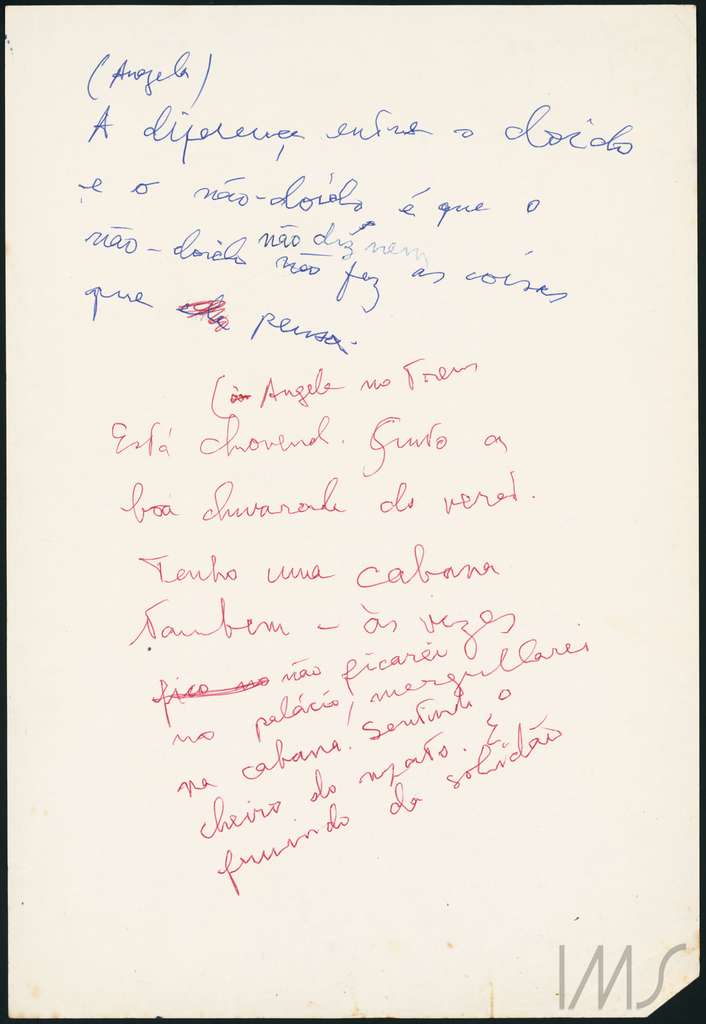 (Angela)
A diferença entre o doido
e o não-doido é que o
não diz nem
não-doido não faz as coisas
que pensa.
(Angela no Trem
Está chovend. Sinto a
boa chuvarada do verão.
Tenho uma cabana
também – às vezes
fico no não ficarei
no palácio, mergulharei
na cabana. Sentindo o
cheiro do mato. E
fruindo da solidão
IMS